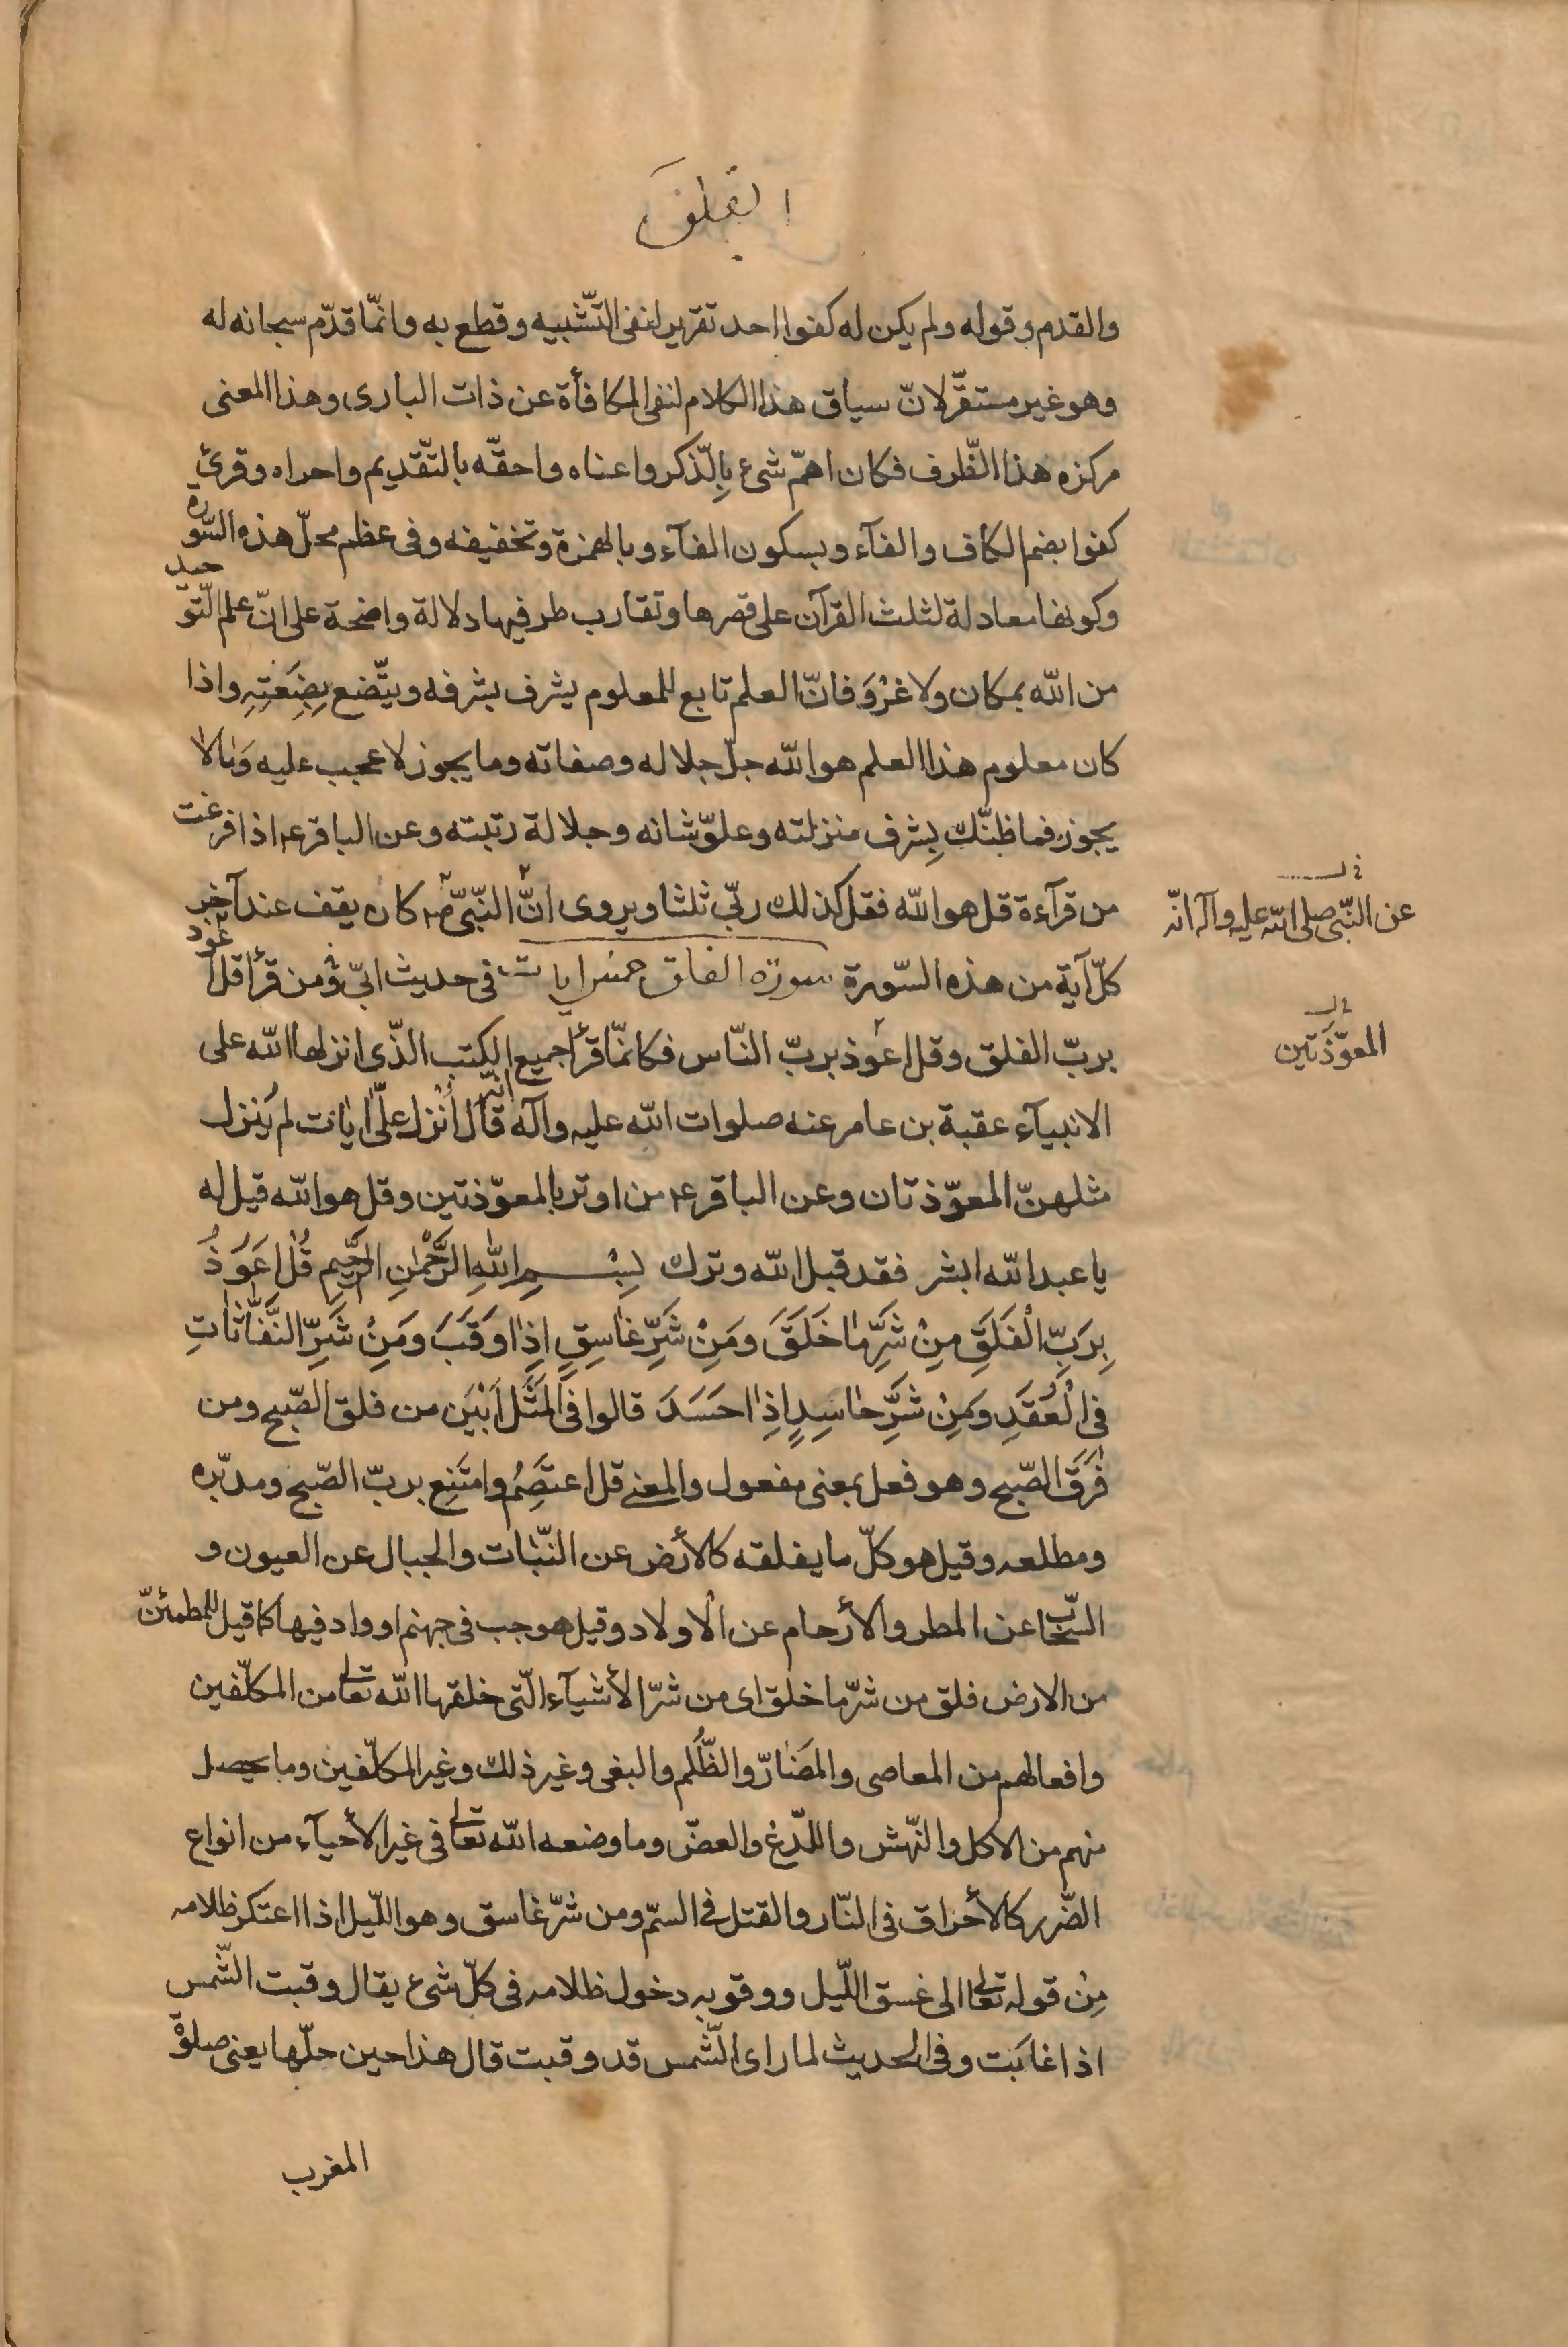 الفلق
والقدم وقوله ولم يكن له كفوا احد تقرير لنفى التّشبيه وقطع به وانّما قدّم سبحانه له
وهو غير مستقرّ لانّ سياق هذا الكلام لنفى المكافأة عن ذات البارى وهذا المعنى
مركزه هذا الظّرف فكان اهمّ شىء بِالّذكر واعناه واحقّه بالتّقديم واحراه وقرئ
كفوا بضم الكاف والفآء وبسكون الفآء وبالهمزة وتخفيفه وفى عظم محلّ هذه السّوره
وكونها معادلة لثلث القرآن على قصرها وتقارب طرفيها دلالة واضحة على انّ علم التّوحيد
من الله بمكان ولا غَرْوَ فانّ العلم تابع للمعلوم يشرف بشرفه ويتّضع بِضِعَتِهِ واذا
كان معلوم هذا العلم هو الله جلّ جلاله وصفاته وما يجوز لا عجب عليه وَمالا
يجوز فما ظنّك بِشرف منزلته وعلوّ شانه وجلالة رتبته وعن الباقر ع اذا فرغت
من قرآءة قل هو الله فقل كذلك ربّى ثلثا ويروى انّ النّبىّ ص كان يقف عند آخر
عن النّبى صلى الله عليه وآله انّه
كلّ آية من هذه السّورة سورة الفلق خمس ايات فى حديث ابىّ ومن قرأ قل اعوذ
بربّ الفلق وقل اعوذ بربّ النّاس فكانمّا قرأ جميع الكتب الّذى انزلها الله على
المعوّذَتين
الانبيآء عقبة بن عامر عنه صلوات الله عليه وآله انّه قال أُنْزِل علىّ ايات لم يَنزل
مثلهنّ المعوّذتان وعن الباقر ع من اوتر بالمعوّذتين وقل هو الله قيل له
يا عبد الله ابشر فقد قبل الله وترك بِسْمِ اللهِ الرَّحْمٰنِ الرَّحِيمِ قُلْ اَعُوذُ
بِرَبِّ الْفَلَقِ مِنْ شَرِّ ماٰ خَلَقَ وَمِنْ شَرِّ غاٰسِقٍ اِذاٰ وَقَبَ وَمِنْ شَرِّ النَّفّاٰثاٰتِ
فىِ الْعُقَدِ وَمِنْ شَرِّ حاٰسِدٍ اِذاٰ حَسَدَ قالوا فى المَثَل اَبْيَن من فلق الصّبح ومن
فَرَقَ الصّبح وهو فعل بمعنى مفعول والمعنى قل اعتَصِمُ وامتَنِع بربّ الصّبح ومدبّره
ومطلعه وقيل هو كلّ ما يفلقه كالأرض عن النّبات والجبال عن العيون و
السّحاب عن المطر والأرحام عن الأولاد وقيل هو جب فى جهنم او واد فيها كما قيل للمطمئنّ
من الارض فلق من شرّ ما خلق اى من شرّ الأشيآء الّتى خلقها الله تعالى من المكلّفين
وافعالهم من المعاصى والمَضٰارّ والظُّلم والبغى وغير ذلك وغير المكلّفين وما يحصل
منهم من الاكل والنّهش واللّدغ والعضّ وما وضعه الله تعالى فى غير الأحيآء من انواع
الضّرر كالأحراق فى النّار والقتل فى السمّ ومن شرّ غاسق وهو اللّيل اذا اعتكر ظلامه
مِنْ قوله تعالى الى غسق اللّيل ووقوبه دخول ظلامه فى كلّ شىء يقال وقبت الشّمس
اذا غابَت وفى الحديث لما راى الشّمس قد وقبت قال هذا حين حلّها يعنى صلوة
المغرب